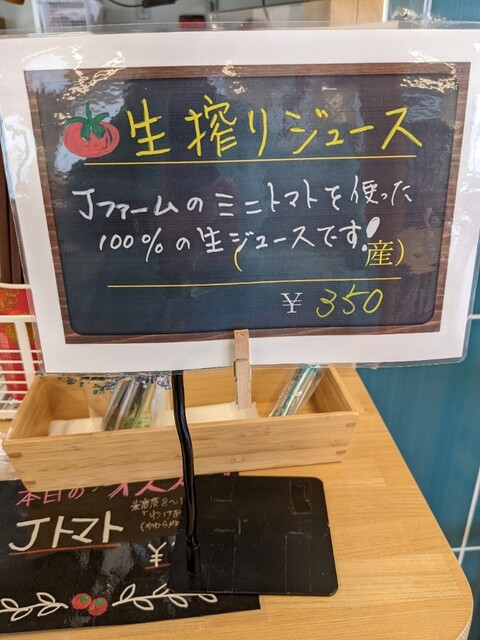 生搾りジュース
Jファームのミニトマトを使った
100%の生ジュースです!
(　　　産)
¥ 350
本日の
Jトマト
¥